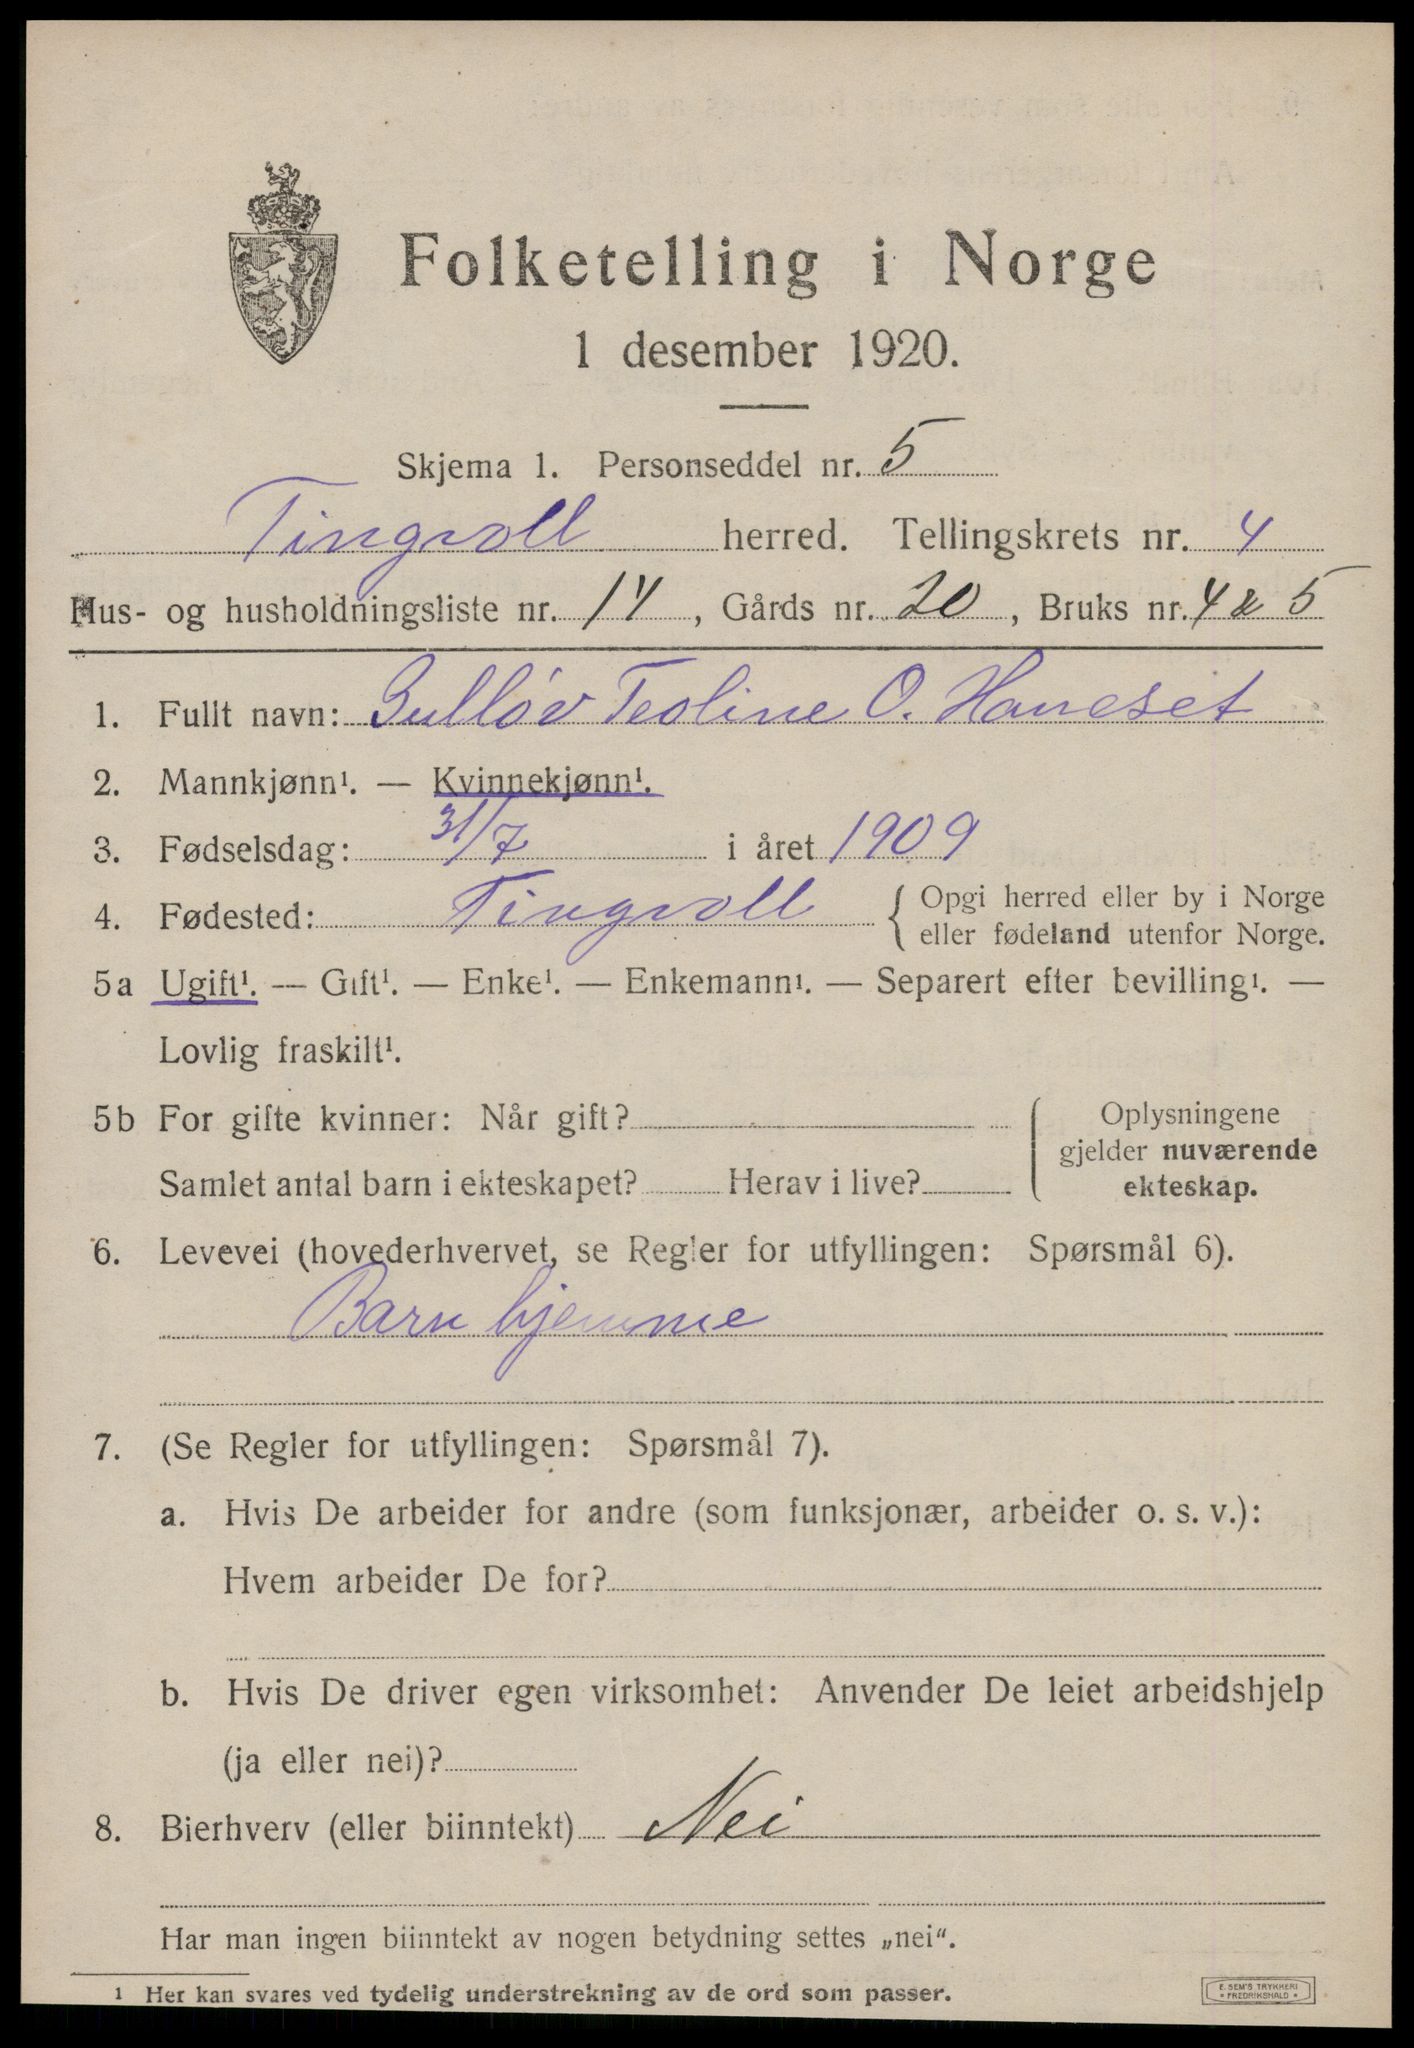 Folketelling i Norge
1 desember 1920.
Skjema 1. Personseddel nr. 5
Tingvoll herred. Tellingskrets nr. 4
Hus- og husholdningsliste nr. 14, Gårds nr. 20, Bruks nr. 4 & 5
1. Fullt navn: Gulløv Teoline O. Haneset
2. Mannkjønn¹. — Kvinnekjønn¹.
3. Fødselsdag: 31/7 i året 1909
4. Fødested: Tingvoll { Opgi herred eller by i Norge
eller fødeland utenfor Norge.
5a Ugift¹. — Gift¹. — Enke¹. — Enkemann¹. — Separert efter bevilling¹. —
Lovlig fraskilt¹.
5b For gifte kvinner: Når gift?
Samlet antal barn i ekteskapet? Herav i live?
Oplysningene
gjelder nuværende
ekteskap.
6. Levevei (hovederhvervet, se Regler for utfyllingen: Spørsmål 6).
Barn hjemme
7. (Se Regler for utfyllingen: Spørsmål 7).
a. Hvis De arbeider for andre (som funksjonær, arbeider o. s. v.):
Hvem arbeider De for?
b. Hvis De driver egen virksomhet: Anvender De leiet arbeidshjelp
(ja eller nei)?
8. Bierhverv (eller biinntekt) Nei
Har man ingen biinntekt av nogen betydning settes „nei“.
1 Her kan svares ved tydelig understrekning av de ord som passer.
E. SEM'S TRYKKERI
* FREDRIKSHALD *